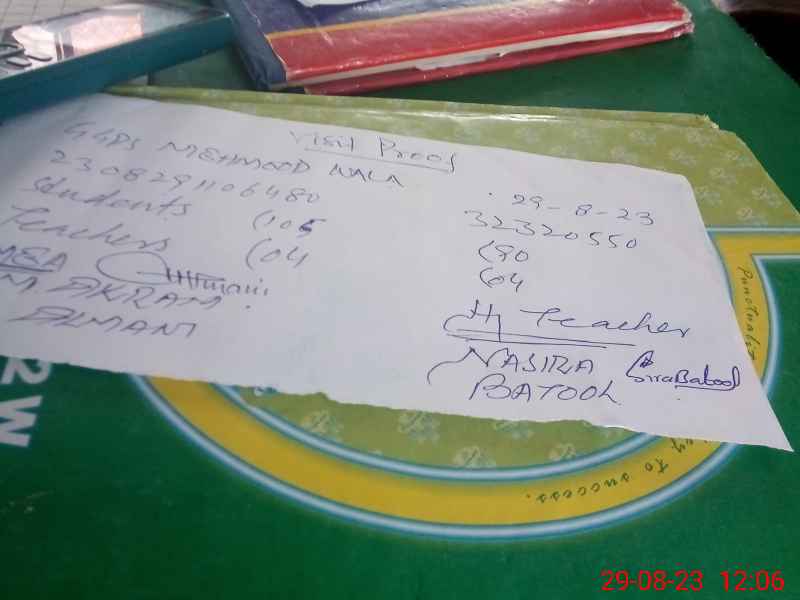 Visit Proof
GGPS MEHMOOD WALA
29-8-23
2308291106480
32320550
Students (105
(90
Teachers (04
(04
MEA
M. AKRAM
ALMANI
H/Teacher
NASIRA
BATOOL
Punctualit
to success.
2W
29-08-23 12:06